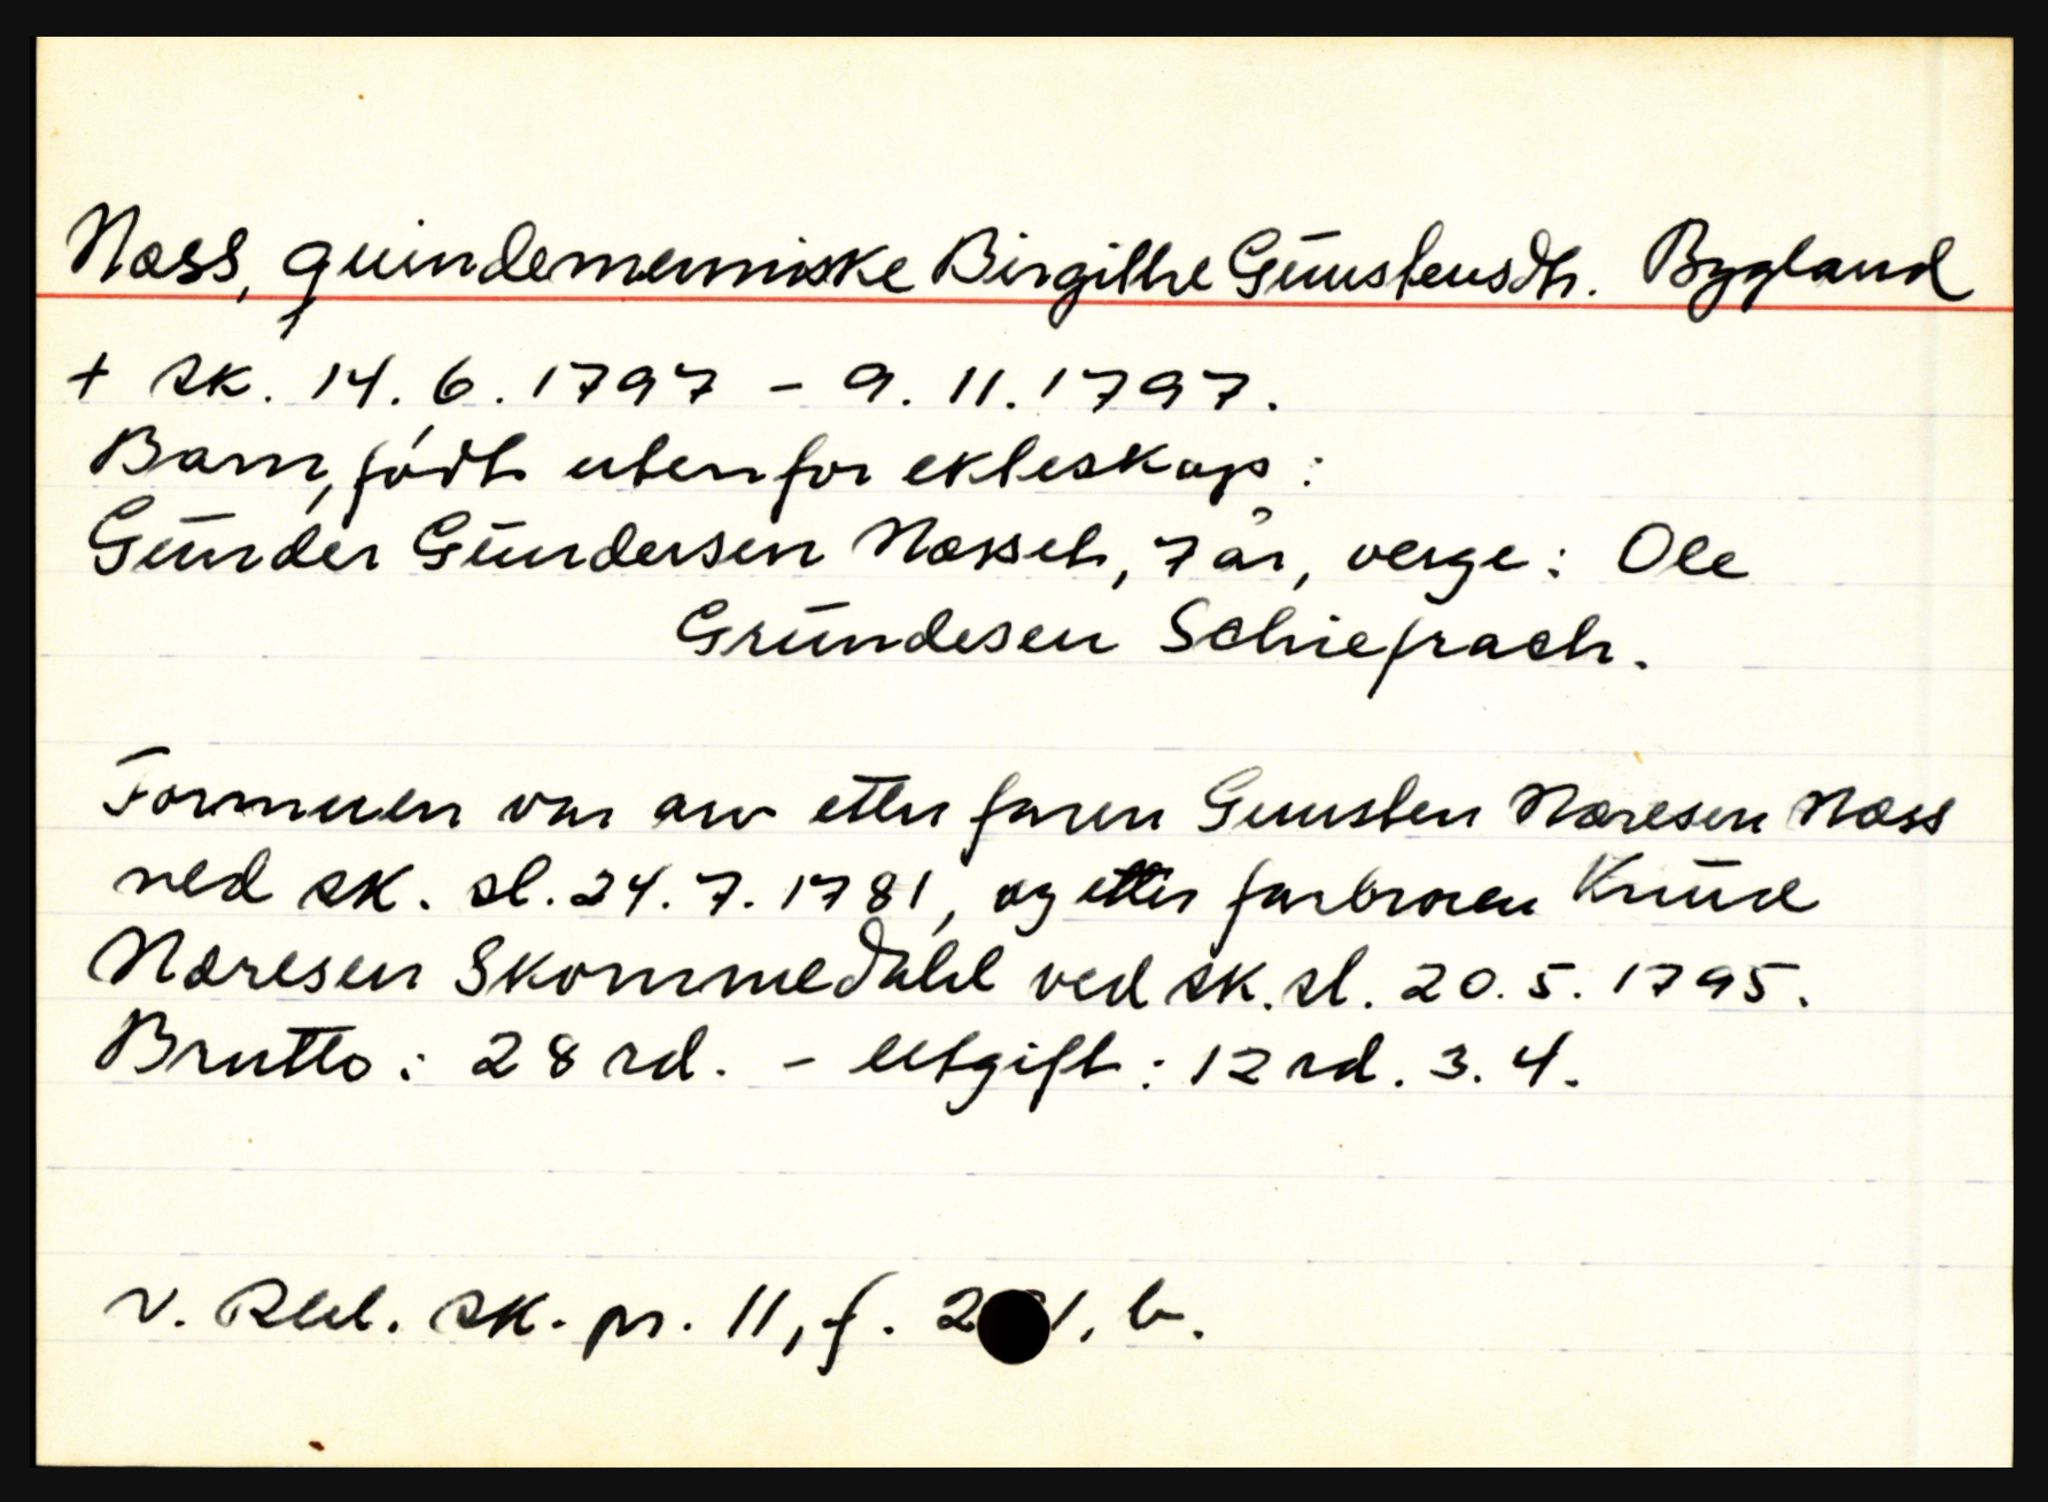 Næss, quindemenniske Birgithe Gúnstensdtr. Bygland
+ sk. 14.6.1797 - 9.11.1797.
Barn, født utenfor ekteskap:
Gúnder Gúndersen Næsset, 7 år, verge: Ole
Grúndesen Schiefrach.
Formuen var arv etter faren Gunsten Næresen Næss
ved sk. sl. 24.7.1781, og etter farbroren Knúd
Næresen Skommedahl ved sk. sl. 20.5.1795.
Brutto: 28 rd. - Utgift: 12 rd. 3.4.
V. Rbl. sk. pr. 11, f. b.